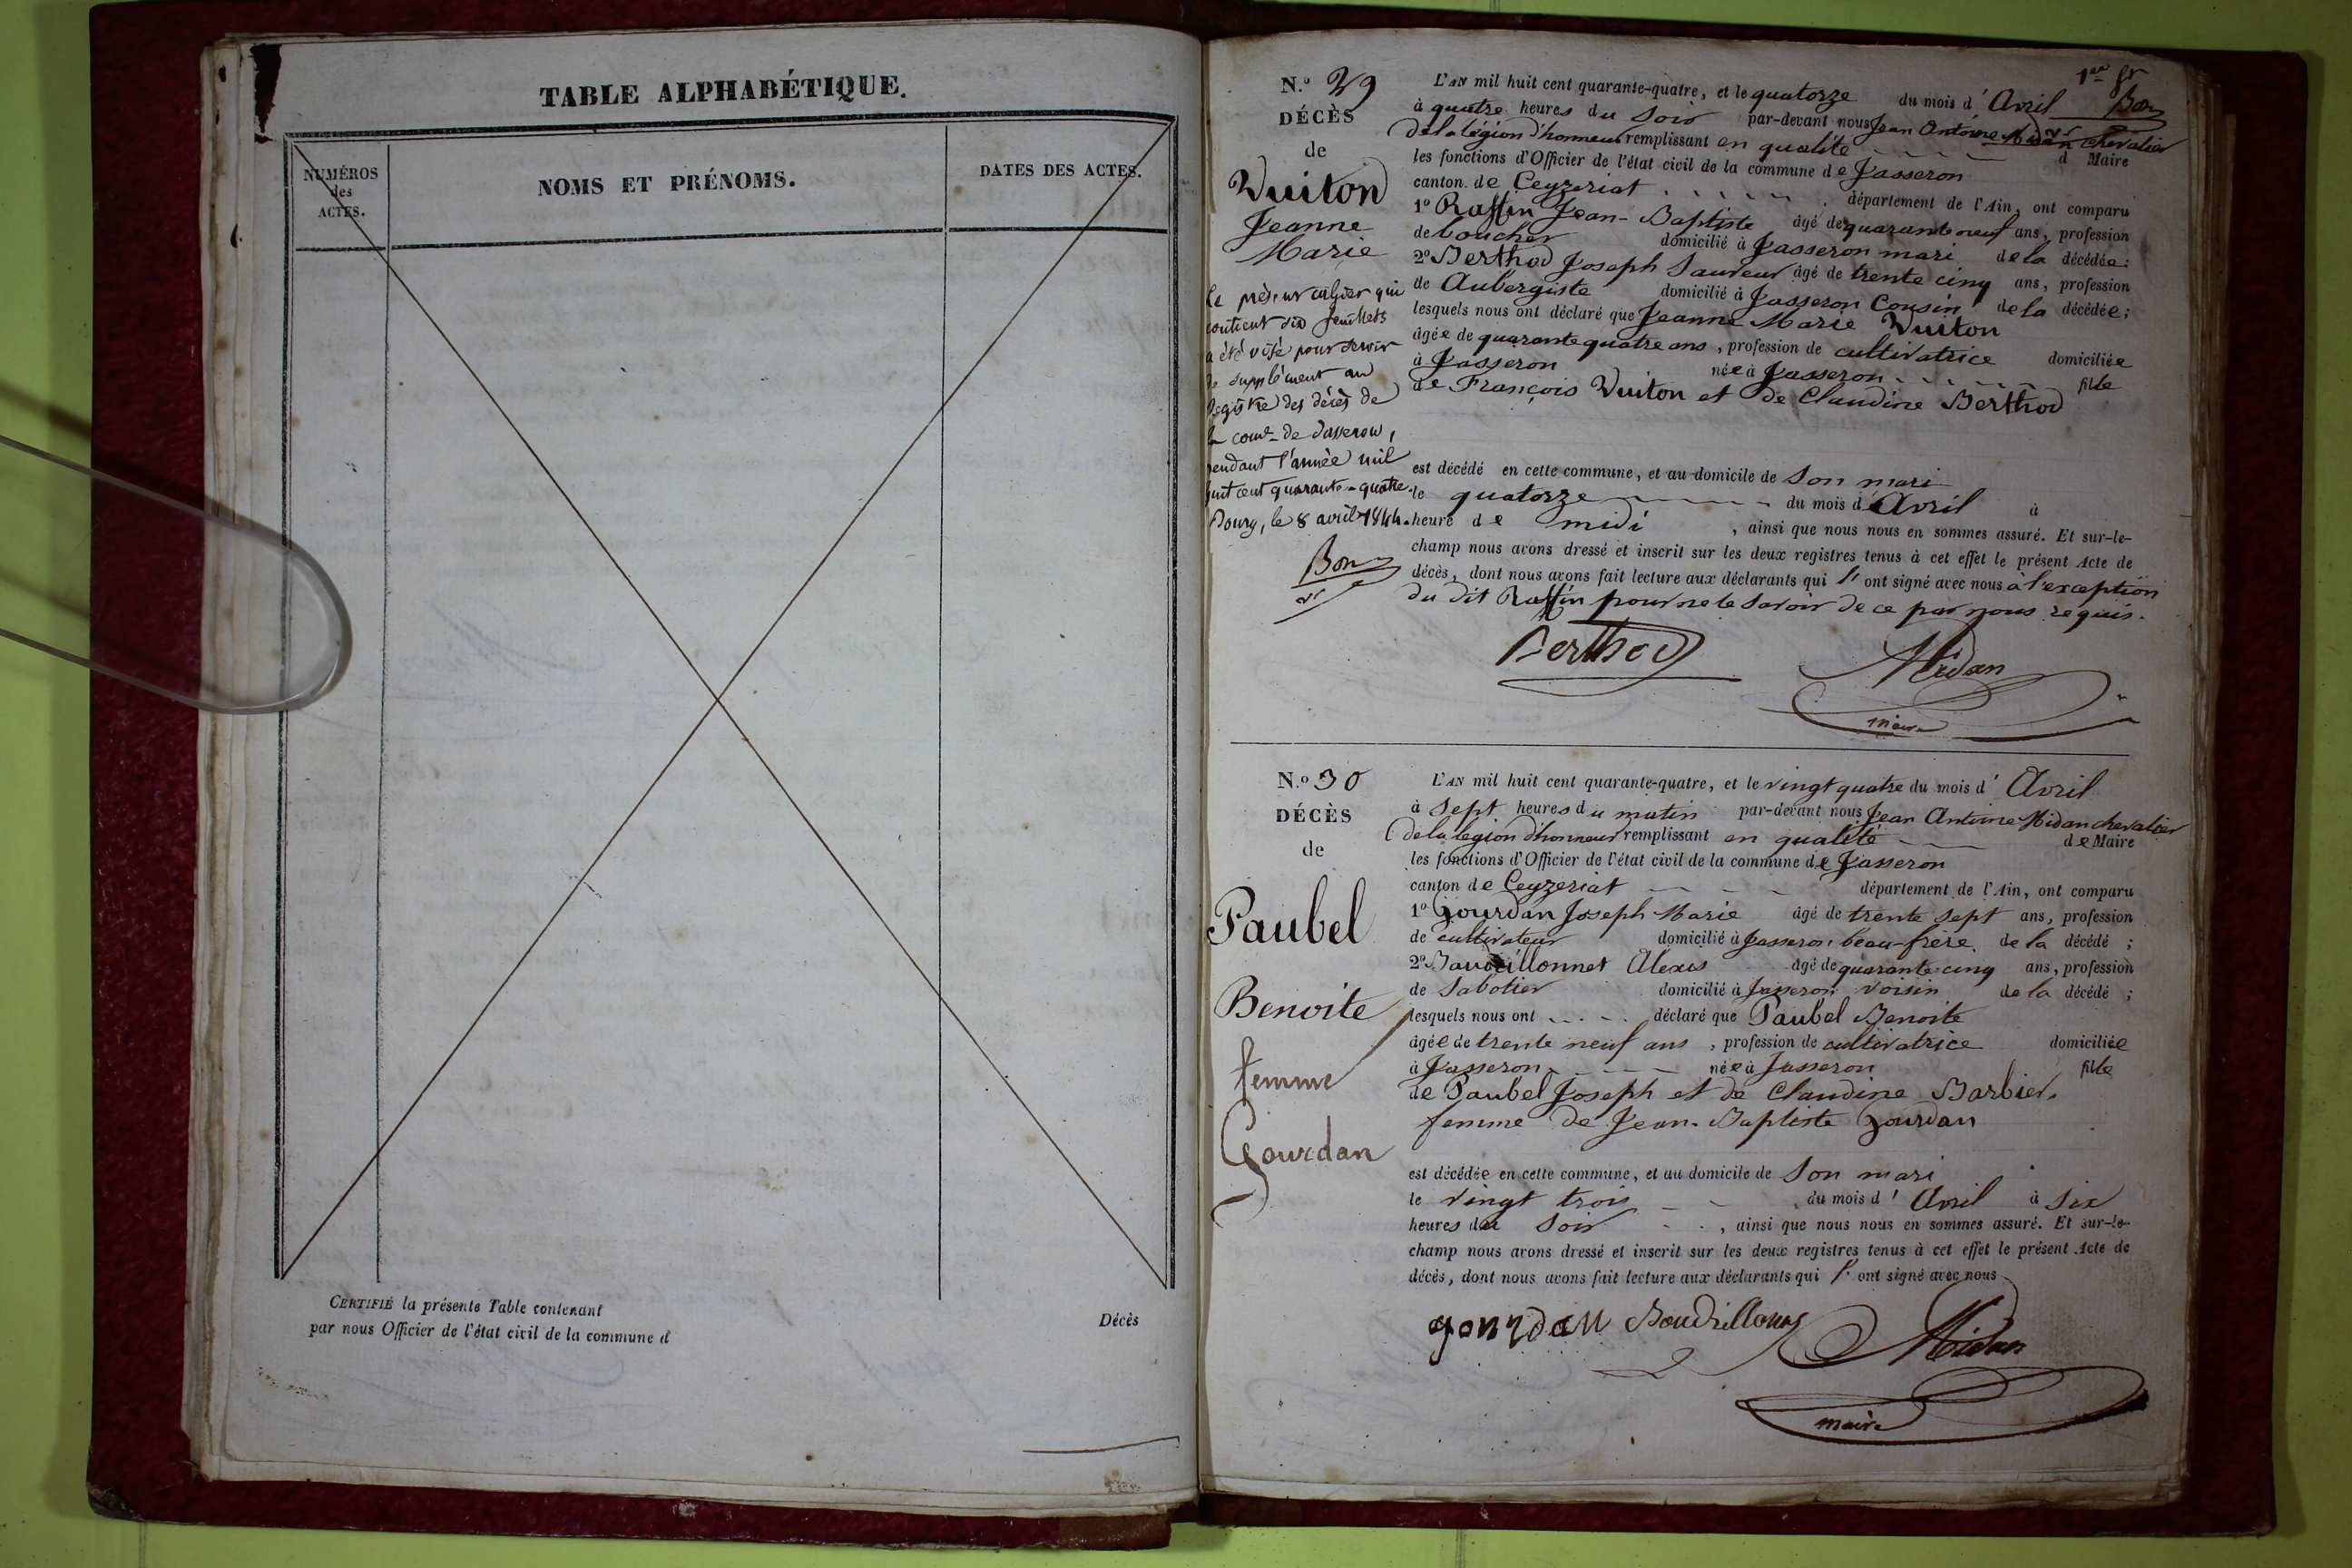 TABLE ALPHABÉTIQUE.
NUMÉROS
des
ACTES.
NOMS ET PRÉNOMS.
DATES DES ACTES.
CERTIFIÉ la présente Table contenant
Décès
par nous Officier de l'état civil de la commune d
N.º 29
DÉCÈS
de
Vuiton
Jeanne
Marie
Le présent cahier qui
contient six feuillets
a été visé pour servir
de supplément au
Registre des décès de
la comᵉ de Jasseron,
pendant l'année mil
huit cent quarante-quatre.
Bourg, le 8 avril 1844.
Bon
1er
Bon
L'AN mil huit cent quarante-quatre, et le quatorze du mois d' Avril
à quatre heures du Soir par-devant nous Jean Antoine Midan chevalier
de la légion d'honneur remplissant en qualité d Maire
les fonctions d'Officier de l'état civil de la commune de Jasseron
canton de Ceyzeriat département de l'Ain, ont comparu
1º Raffin Jean-Baptiste âgé de quarante neuf ans, profession
de boucher domicilié à Jasseron mari de la décédée;
2º Berthod Joseph Sauveur âgé de trente cinq ans, profession
de Aubergiste domicilié à Jasseron Cousin de la décédée;
lesquels nous ont déclaré que Jeanne Marie Vuiton
âgée de quarante quatre ans, profession de cultivatrice domiciliée
à Jasseron née à Jasseron fille
de François Vuiton et de Claudine Berthod
est décédé en cette commune, et au domicile de Son mari
le quatorze du mois d'Avril à
heure de midi, ainsi que nous nous en sommes assuré. Et sur-le-
champ nous avons dressé et inscrit sur les deux registres tenus à cet effet le présent Acte de
décès, dont nous avons fait lecture aux déclarants qui l' ont signé avec nous à l'exception
du dit Raffin pour ne le Savoir de ce par nous requis.
Berthod Midan
maire
N.º 30
DÉCÈS
de
Paubel
Benoite
femme
Gourdan
L'AN mil huit cent quarante-quatre, et le vingt quatre du mois d' Avril
à Sept heures du matin par-devant nous Jean Antoine Midan chevalier
de la légion d'honneur remplissant en qualité de Maire
les fonctions d'Officier de l'état civil de la commune de Jasseron
canton de Ceyzeriat département de l'Ain, ont comparu
1º Gourdan Joseph Marie âgé de trente Sept ans, profession
de cultivateur domicilié à Jasseron beau-frère de la décédé;
2º Baudrillonnet Alexis âgé de quarante cinq ans, profession
de Sabotier domicilié à Jasseron voisin de la décédé;
lesquels nous ont déclaré que Paubel Benoite
âgée de trente neuf ans, profession de cultivatrice domiciliée
à Jasseron née à Jasseron fille
de Paubel Joseph et de Claudine Barbier,
femme de Jean-Baptiste Gourdan
est décédée en cette commune, et au domicile de Son mari
le vingt trois du mois d' Avril à Six
heures du Soir, ainsi que nous nous en sommes assuré. Et sur-le-
champ nous avons dressé et inscrit sur les deux registres tenus à cet effet le présent Acte de
décès, dont nous avons fait lecture aux déclarants qui l' ont signé avec nous
gourdan Midan
maire